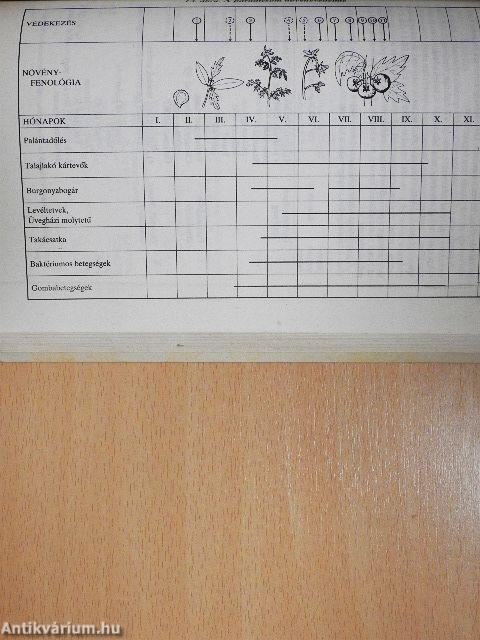 VÉDEKEZÉS
1 2 3 4 5 6 7 8 9 10 11
NÖVÉNY-
FENOLÓGIA
HÓNAPOK I. II. III. IV. V. VI. VII. VIII. IX. X. XI.
Palántadőlés
Talajlakó kártevők
Burgonyabogár
Levéltetvek,
Üvegházi molytetű
Takácsatka
Baktériumos betegségek
Gombabetegségek
Antikvárium.hu